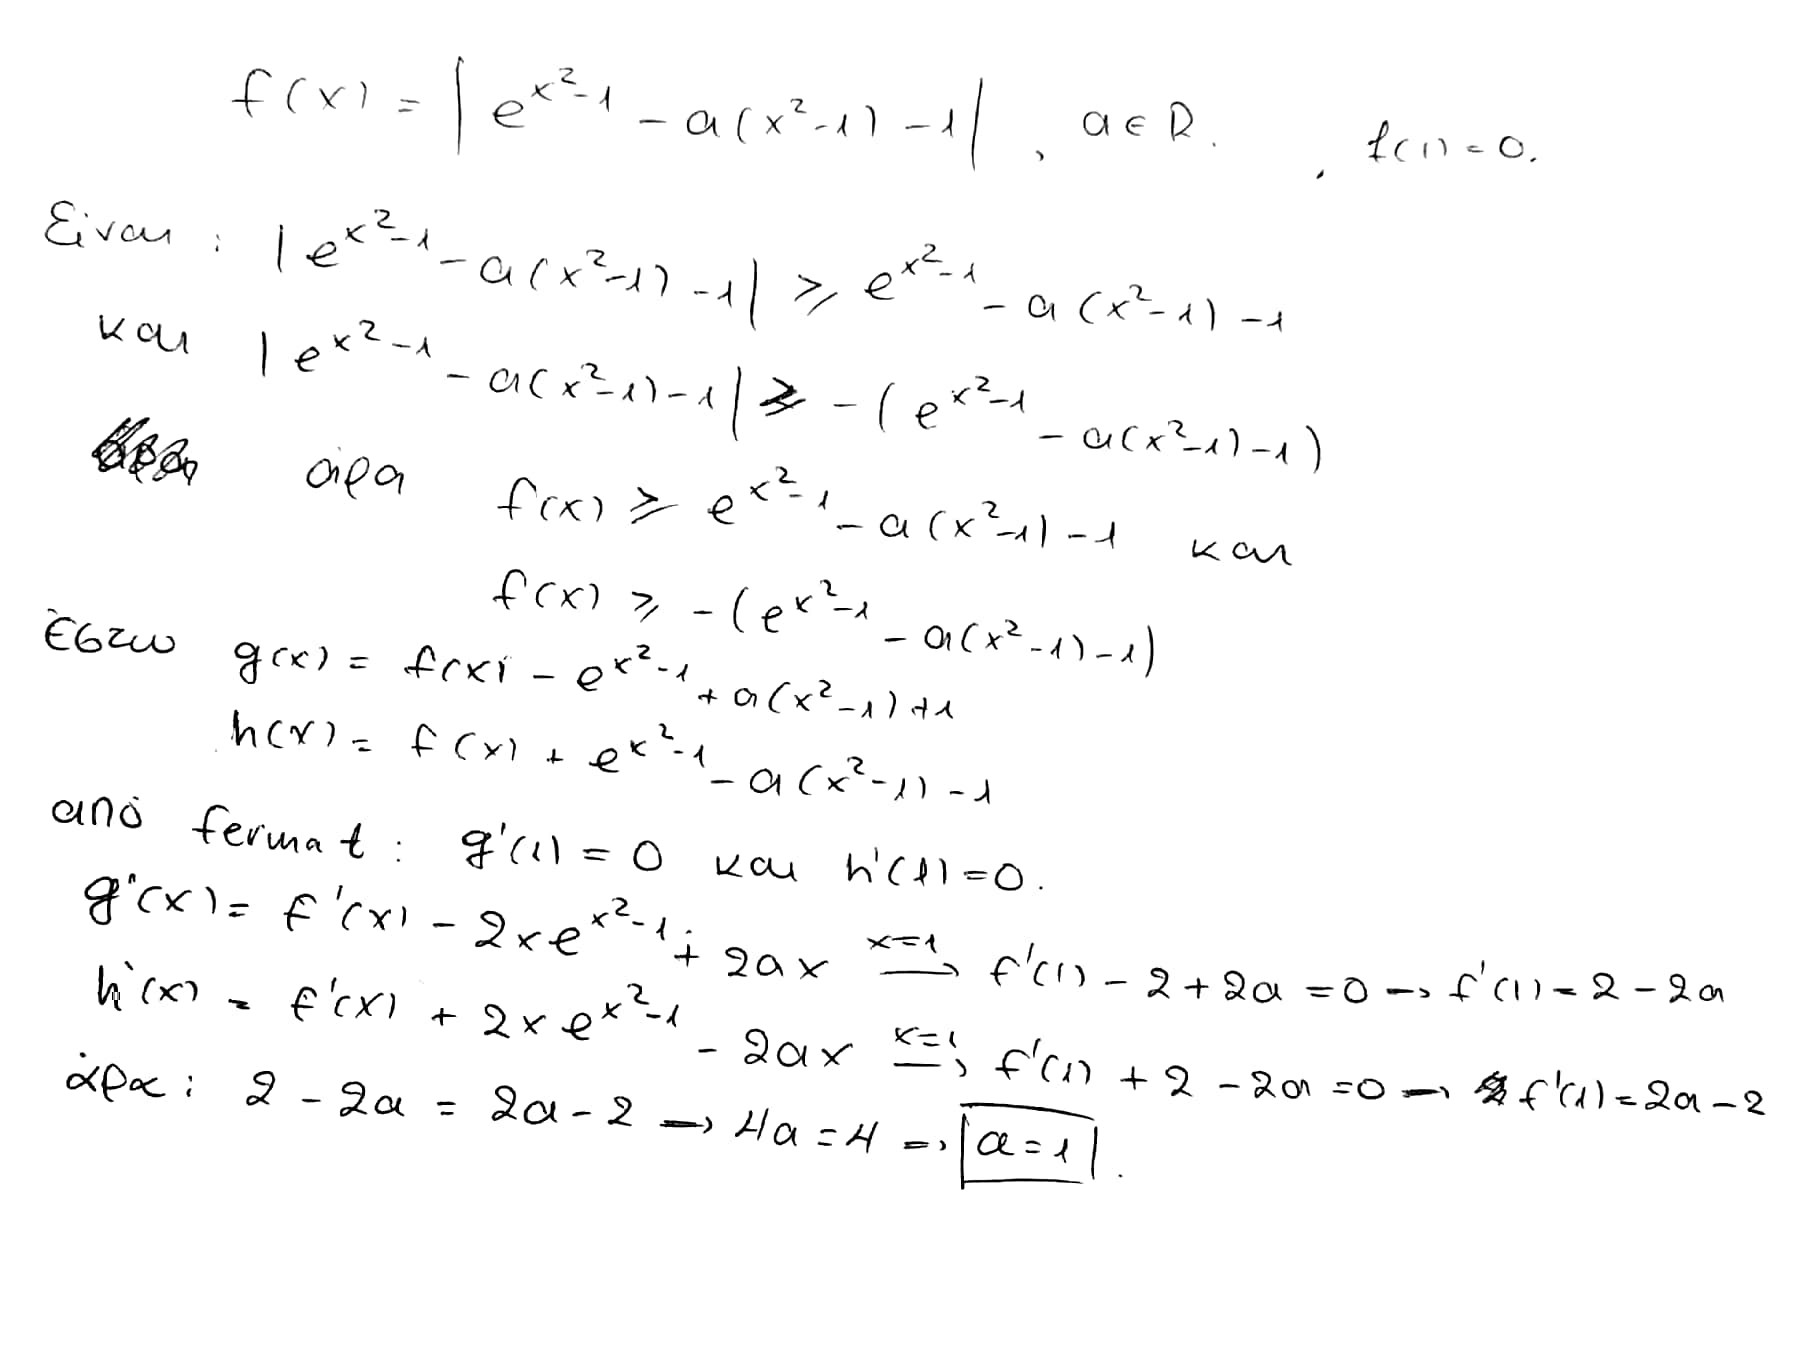 f(x) = |e^{x²-1} - a(x²-1) - 1|, a ∈ R. , f(1) = 0.
Είναι : |e^{x²-1} - a(x²-1) - 1| ≥ e^{x²-1} - a(x²-1) - 1
και |e^{x²-1} - a(x²-1) - 1| ≥ -(e^{x²-1} - a(x²-1) - 1)
άρα f(x) ≥ e^{x²-1} - a(x²-1) - 1 και
f(x) ≥ -(e^{x²-1} - a(x²-1) - 1)
Έστω g(x) = f(x) - e^{x²-1} + a(x²-1) + 1
h(x) = f(x) + e^{x²-1} - a(x²-1) - 1
από fermat : g'(1) = 0 και h'(1) = 0.
g'(x) = f'(x) - 2xe^{x²-1} + 2ax x=1 → f'(1) - 2 + 2a = 0 → f'(1) = 2 - 2a
h'(x) = f'(x) + 2xe^{x²-1} - 2ax x=1 → f'(1) + 2 - 2a = 0 → f'(1) = 2a - 2
άρα : 2 - 2a = 2a - 2 → 4a = 4 → a = 1.